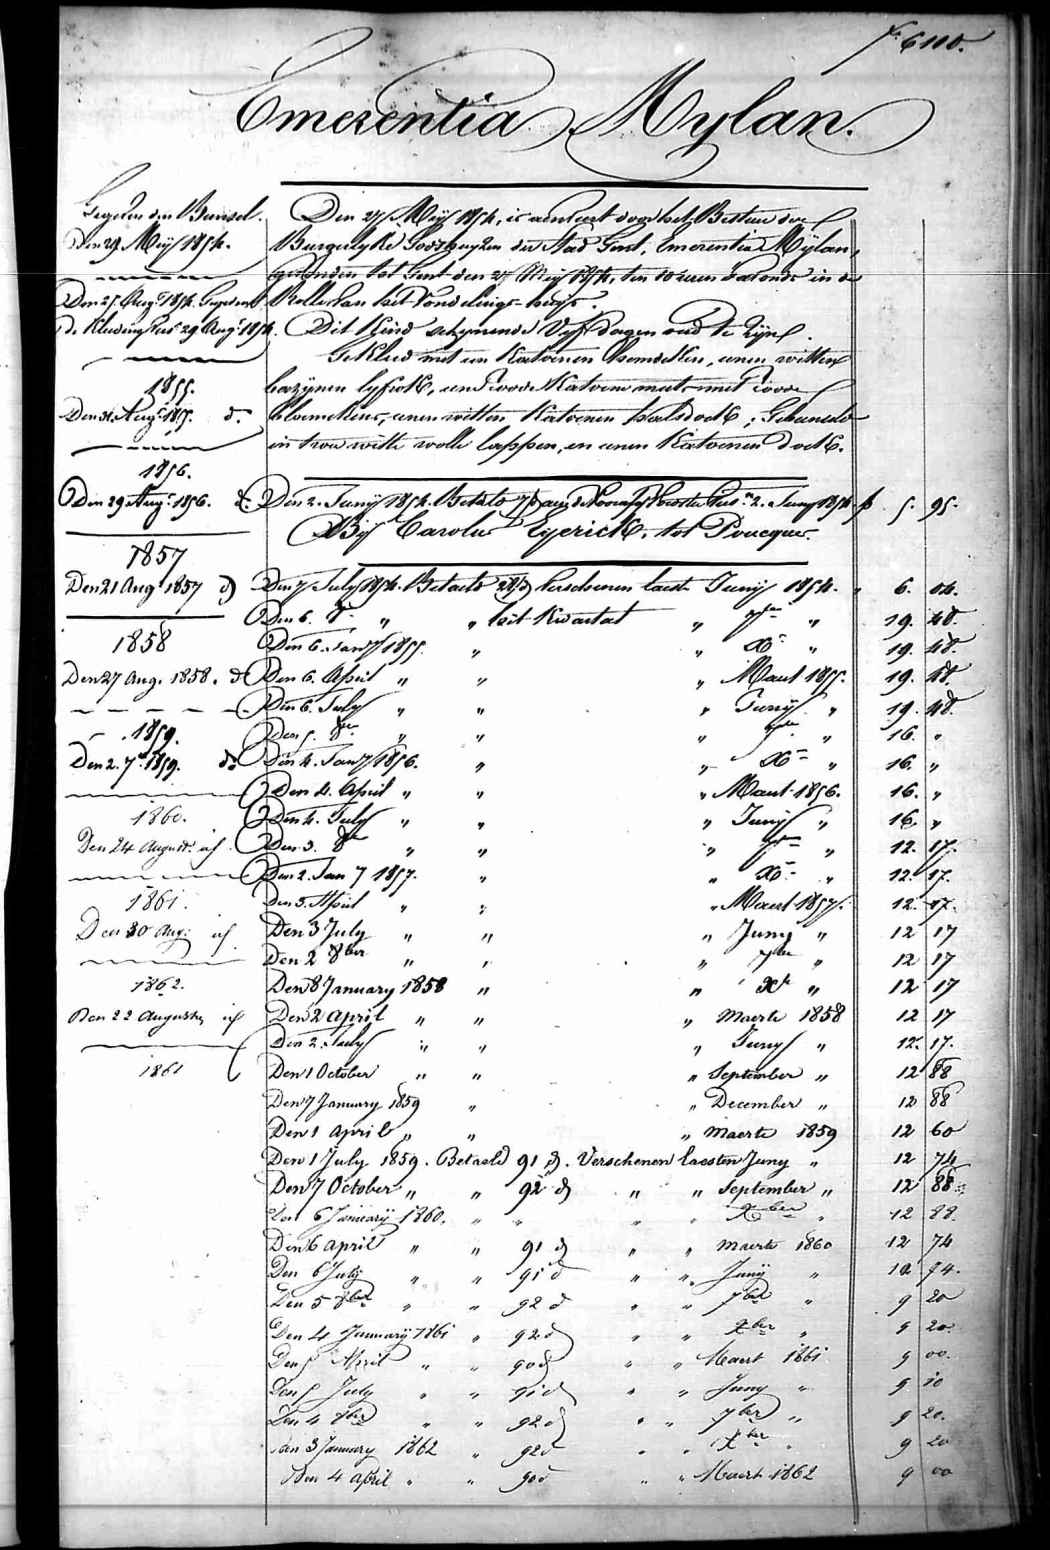 6110.
Emerentia Mylan.
Gegeven den Bundsel.
Den 29 Meij 1854.
Den 25 Augt 1854.
de Kleeding 29 Augt 1854.
1855.
Den 31 Augt 1855. do
1856.
Den 29 Augt 1856. do
1857
Den 21 Aug 1857 do
1858
Den 27 Aug. 1858. do
1859.
Den 2. 7r 1859. do
1860.
Den 24 Augusti id
1861.
Den 30 Aug: id
1862.
Den 22 Augusty id
1861
Den 27 Meij 1854, is door het Bestuur der
Burgerlyke Godshuyzen der Stad Gent, Emerentia Mÿlan,
gevonden tot Gent den 27 Meij 1854, ten 10 uren s'avonds in de
Rolle van het Vondelings huys.
Dit Kind schynende Vyf dagen oud te Zijn.
Gekleed met een Katoenen hemdeken, eenen witten
bazynen lyfrok, eene roode Katoene muts met roode
bloemekens, eenen witten Katoenen halsdoek; Gebundeld
in twee witte wolle lappen, en eenen Katoenen doek.
Den 2. Junij 1854. Betaeld 2. Junij 1854 5. 95.
Bij Carolus Eyerick. tot Poucques.
Den 7 July 1854. Betaeld 28 d Verschenen laest Junij 1854. " 6. 04.
Den 6. 8r " " het Kwartael " 7bre " 19. 48.
Den 6. Jany 1855. " " Xr " 19. 48.
Den 6. April " " " Maert 1855. 19. 48.
Den 6. July " " " Junij " 19. 48.
Den 5. 8bre " " " 7bre " 16. "
Den 4. Jany 1856. " " Xr " 16. "
Den 4. April " " " Maert 1856. 16. "
Den 4. July " " " Junij " 16. "
Den 3. 8bre " " " 7bre " 12. 17.
Den 2. Jany 1857. " " Xr " 12. 17.
Den 3. April " " " Maert 1857. 12. 17.
Den 3 July " " " Juny " 12 17
Den 2 8ber " " " 7bre " 12 17
Den 8 January 1858 " " Xr " 12 17
Den 2 April " " " Maerte 1858 12 17
Den 2. July " " " Juny " 12. 17.
Den 1 October " " " September " 12 88
Den 7 January 1859 " " December " 12 88
Den 1 April " " " Maerte 1859 12 60
Den 1 July 1859. Betaeld 91 d. Verschenen laesten Juny " 12 74
Den 7 October " " 92 d " " September " 12 88
Den 6 January 1860. " " " " Xber " 12 88.
Den 6 April " " 91 d " " Maerte 1860 12 74
Den 6 July " " 91 d " " Junij " 12 74.
Den 5 8ber " " 92 d " " 7ber " 9 20
Den 4 January 1861 " 92 d " " Xber " 9 20.
Den 5 April " " 90 d " " Maert 1861 9 00.
Den 5 July " " 91 d " " Juny " 9 10
Den 4 8ber " " 92 d " " 7ber " 9 20.
Den 3 January 1862 " 92 d " " Xber " 9 20
Den 4 April " " 90 d " " Maert 1862 9 00